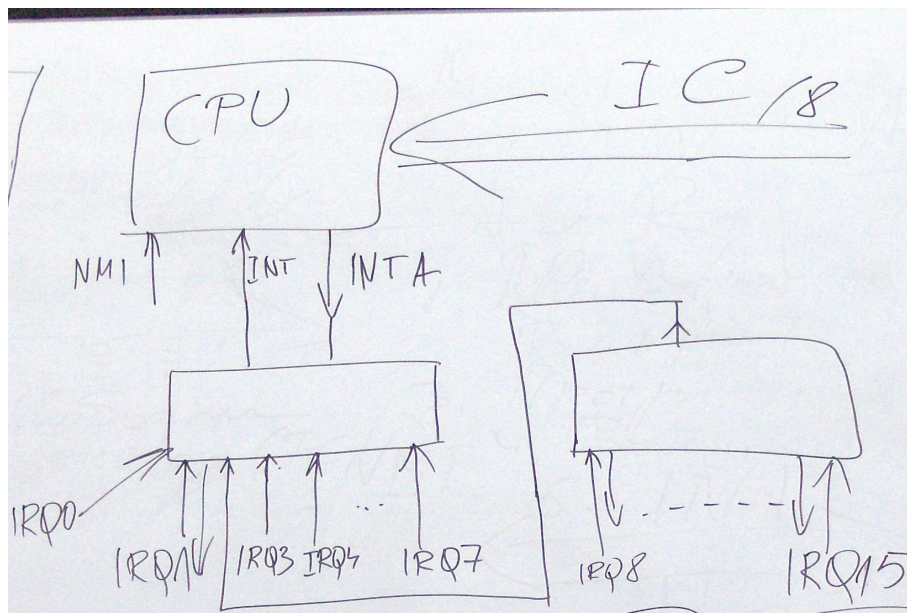 CPU
IC /8
NMI INT INTA
IRQ0
IRQ1 IRQ3 IRQ4 ... IRQ7 IRQ8 IRQ15